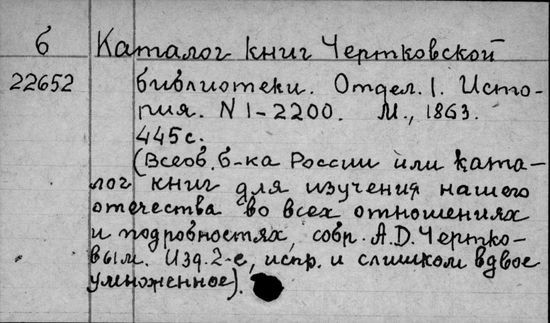 б Каталог книг Чертковской
22652 библиотеки. Отдел. 1. Исто-
рия. N 1-2200. М., 1863.
445с.
(Всеоб. б-ка России или ката-
лог книг для изучения нашего
отечества во всех отношениях
и подробностях, собр. А.Д. Чертко-
вым. Изд. 2-е, испр. и слишком вдвое
умноженное).